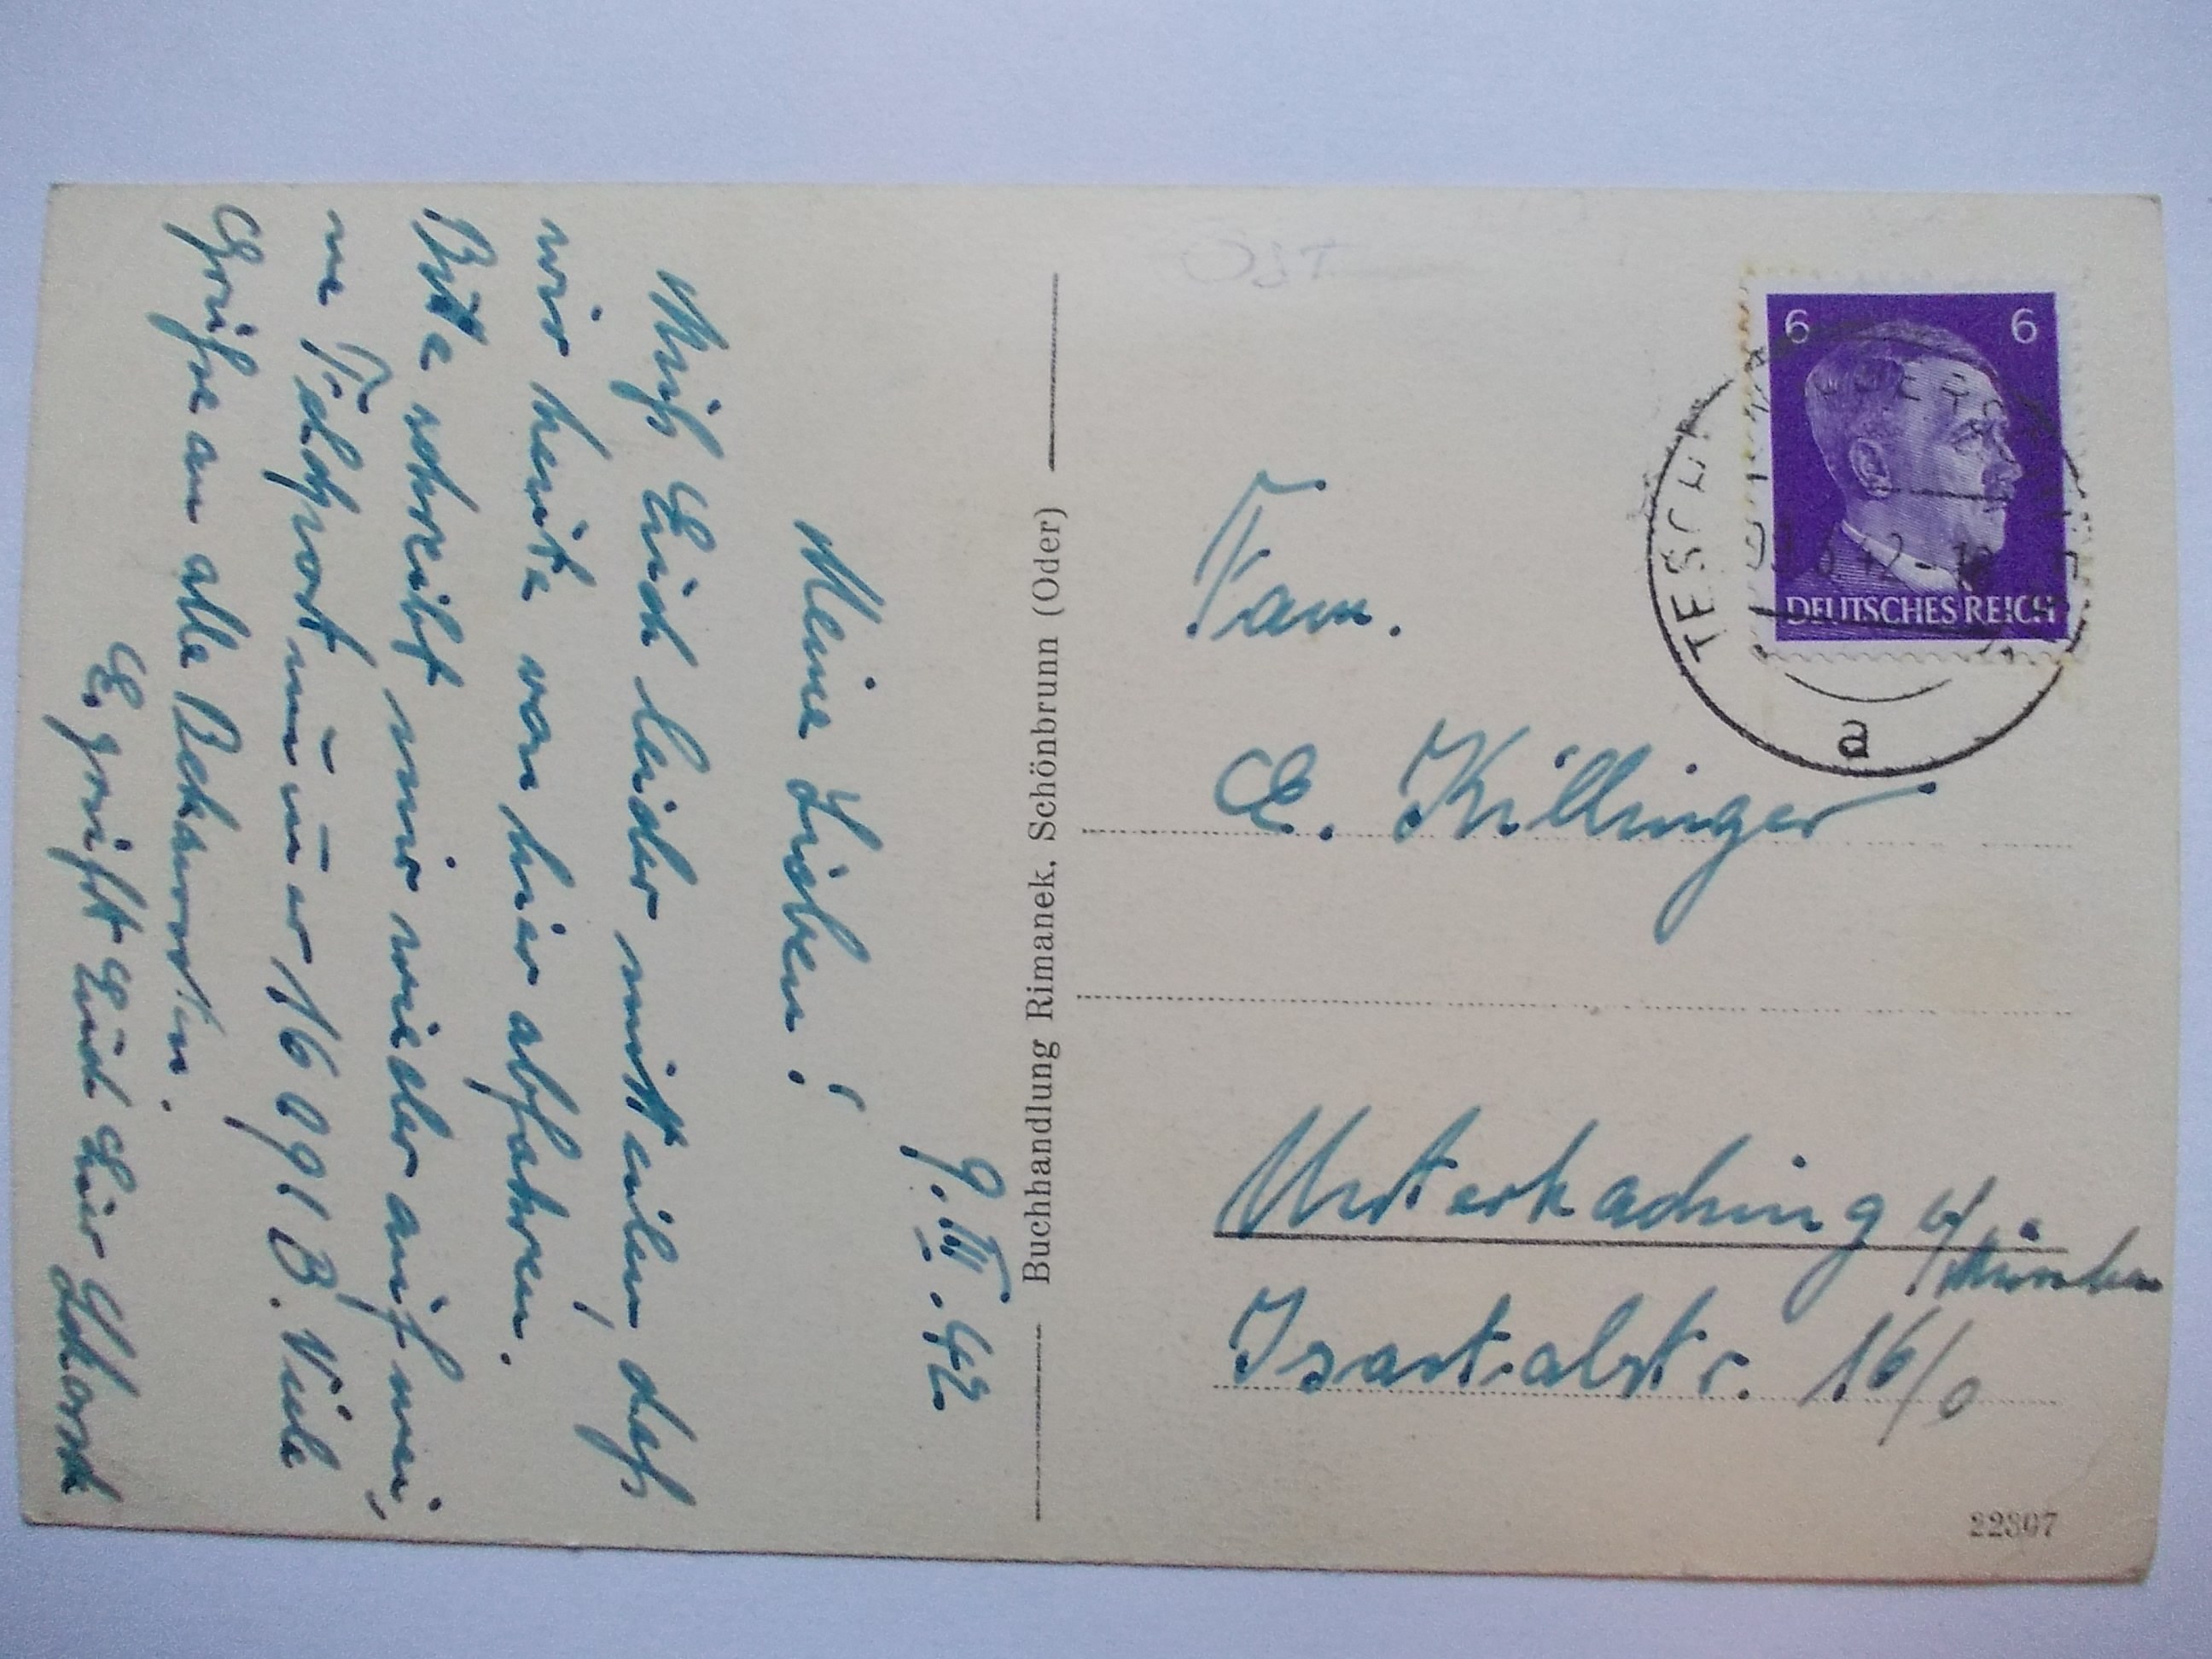 9. III. 42
Meine Lieben!
Muß Euch leider mitteilen, daß
wir heute von hier abfahren.
Bitte schreibt mir wieder auf mei-
ne Feldpost nummer 16091 B. Viele
Grüße an alle Bekannten.
Es grüßt Euch Euer
Buchhandlung Rimanek, Schönbrunn (Oder)
6 6
DEUTSCHES REICH
TESCHEN
42-
a
Fam.
E. Killinger
Unterhaching b/München
Isartalstr. 16/0
22307